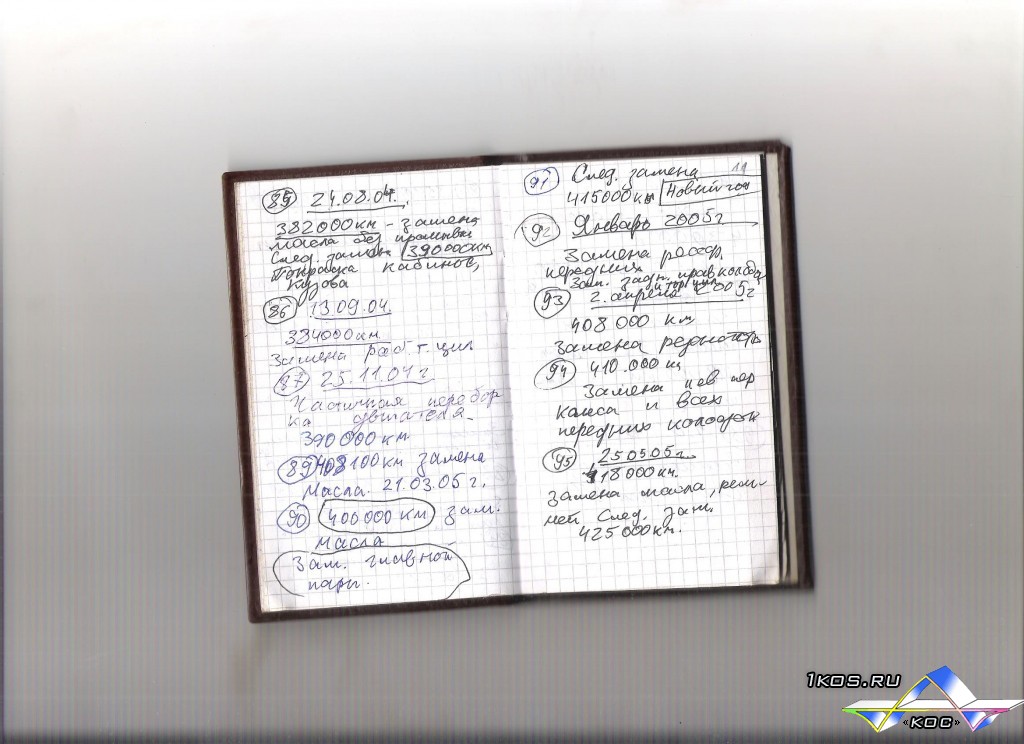 85 24.08.04.
382000км - замена
масла без промывки
След. замена 390000км
кабинов,
кузова
86 13.09.04.
384000км
Замена раб. т. цил
87 25.11.04г
Частичная перебор
ка двигателя.
390000км
89 408100км замена
Масла. 21.03.05г.
90 400000 км зам.
масла
Зам. главной
пары.
11
91 След. замена
415000км Новый год
92 Январь 2005г
Замена рессор
передних
Зам. задн. прав колодо
93 2. апреля 2005г
408 000 км
Замена
94 410.000 км
Замена лев пер
и всех
передних колодок
95 250505г.
418000км.
Замена масла, рем-
ней След. зам.
425000км.
1KOS.RU
«КОС»